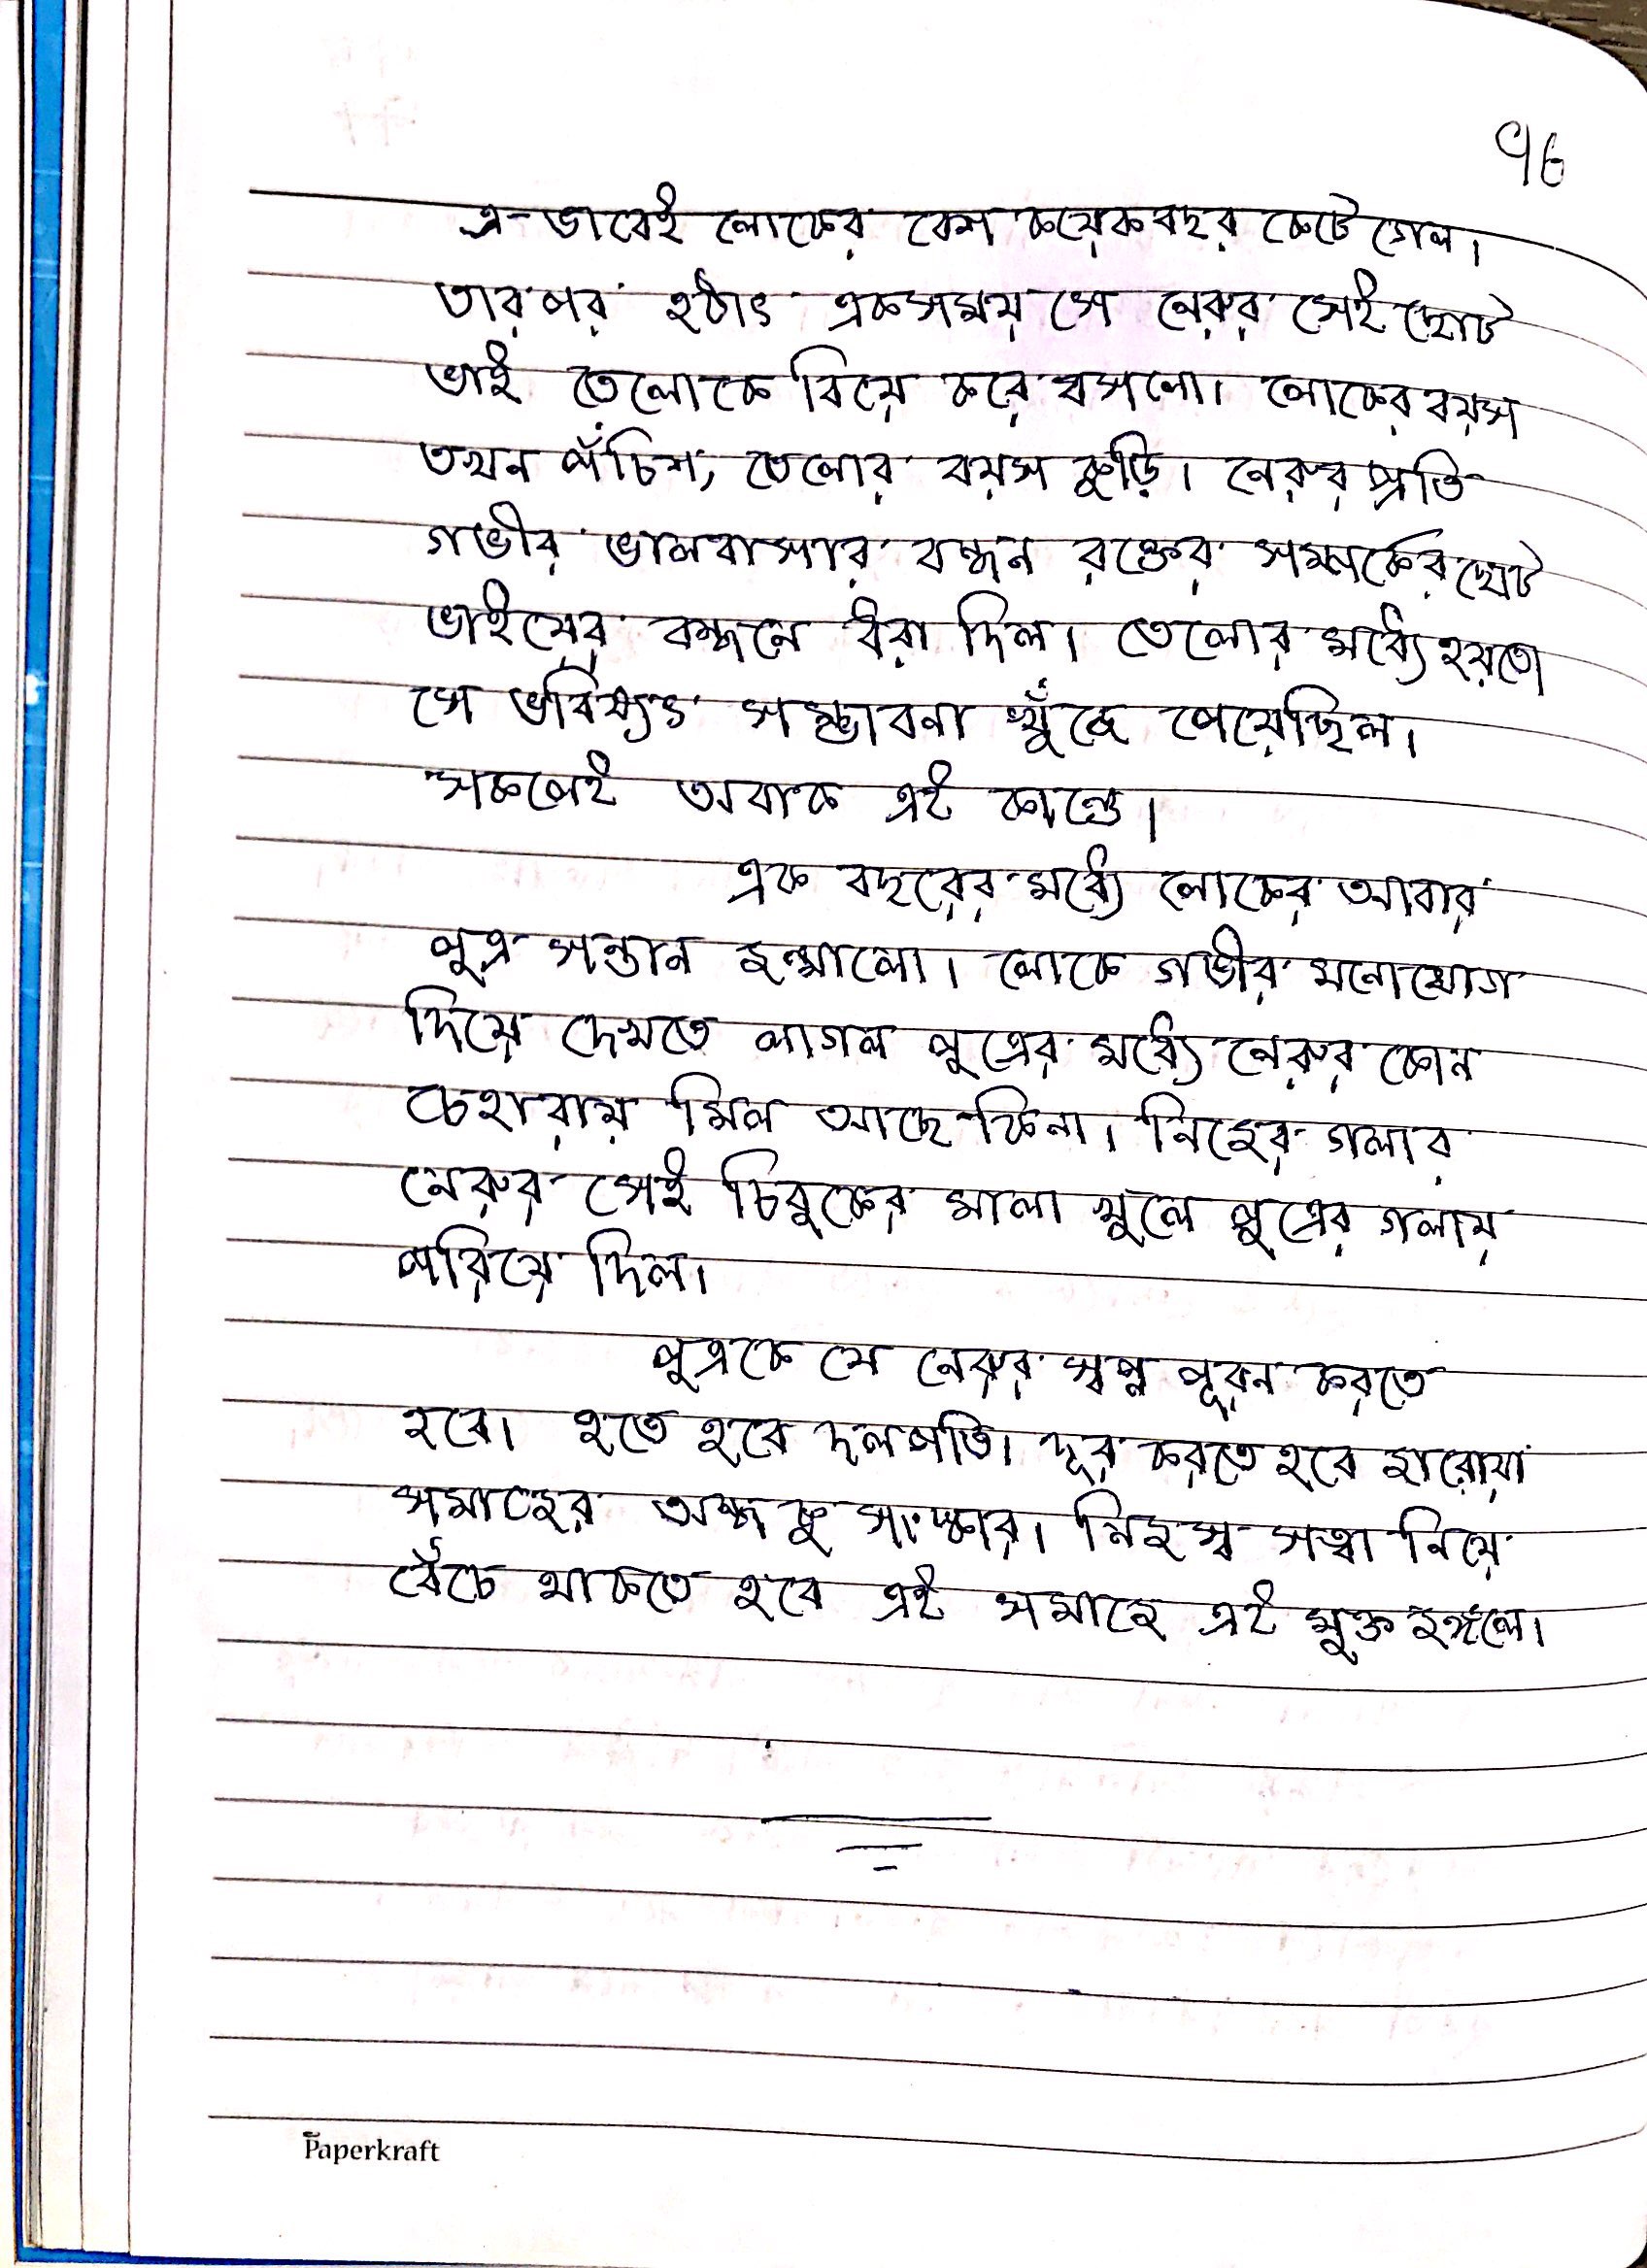 ৭৬
এ-ভাবেই লোকের বেশ কয়েক বছর কেটে গেল।
তারপর হঠাৎ একসময় সে নেরুর সেই ছোট
ভাই তেলোকে বিয়ে করে বসলো। লোকের বয়স
তখন পঁচিশ, তেলোর বয়স কুড়ি। নেরুর প্রতি
গভীর ভালবাসার বন্ধন রক্তের সম্পর্কের ছোট
ভাইয়ের বন্ধনে ধরা দিল। তেলোর মধ্যে হয়তো
সে ভবিষ্যৎ সম্ভাবনা খুঁজে পেয়েছিল।
সকলেই অবাক এই কাণ্ডে।
এক বছরের মধ্যে লোকের আবার
পুত্র সন্তান জন্মালো। লোকে গভীর মনোযোগ
দিয়ে দেখতে লাগল পুত্রের মধ্যে নেরুর কোন
চেহারায় মিল আছে কিনা। নিজের গলার
নেরুর সেই চিবুকের মালা খুলে পুত্রের গলায়
পরিয়ে দিল।
পুত্রকে যে নেরুর স্বপ্ন পূরন করতে
হবে। হতে হবে দলপতি। দূর করতে হবে জারোয়া
সমাজের অন্ধ কুসংস্কার। নিজস্ব সত্বা নিয়ে
বেঁচে থাকতে হবে এই সমাজে এই মুক্ত জঙ্গলে।
Paperkraft